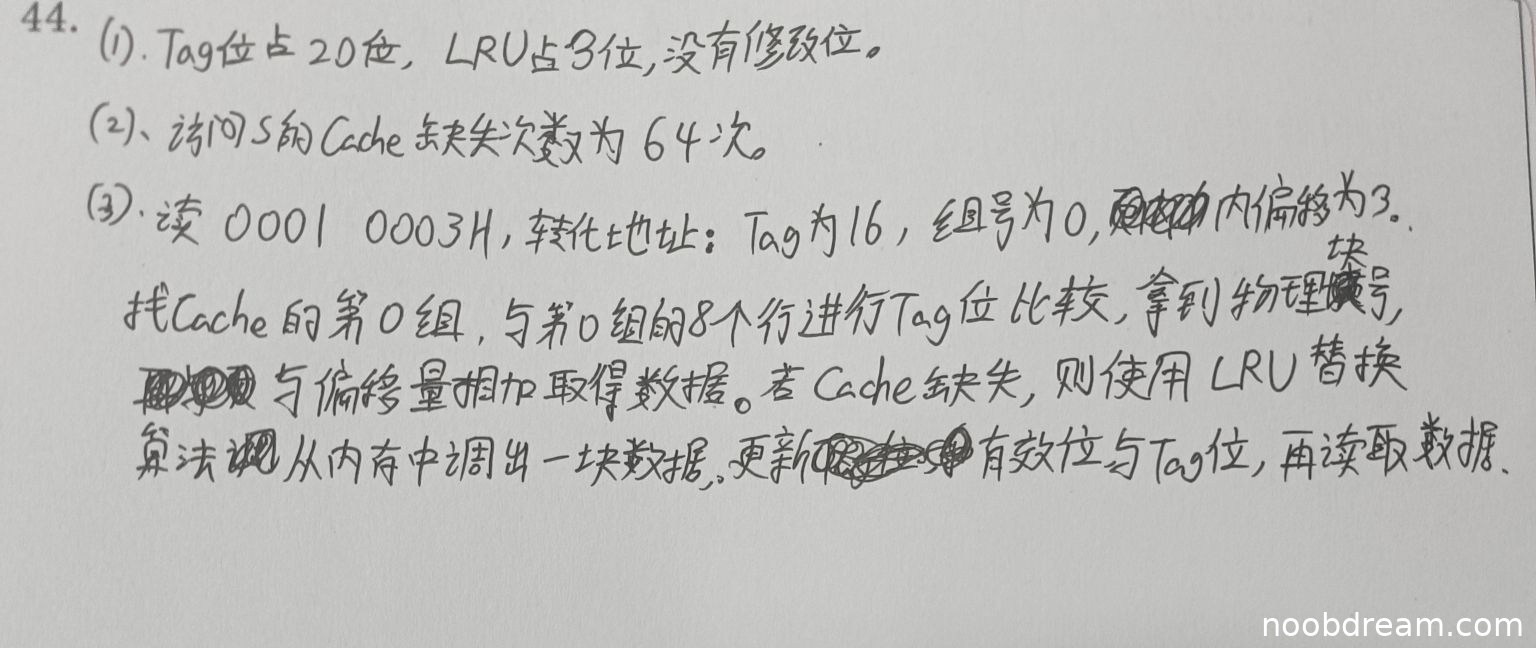 44. (1). Tag位占20位, LRU占3位,没有修改位。
(2)、访问S的Cache缺失次数为64次。
(3). 读 0001 0003H, 转化地址: Tag为16, 组号为0, 内偏移为3.
找Cache的第0组, 与第0组的8个行进行Tag位比较, 拿到物理块号,
与偏移量相加取得数据。若Cache缺失, 则使用LRU替换
算法 从内存中调出一块数据, 更新 有效位与Tag位, 再读取数据.
noobdream.com